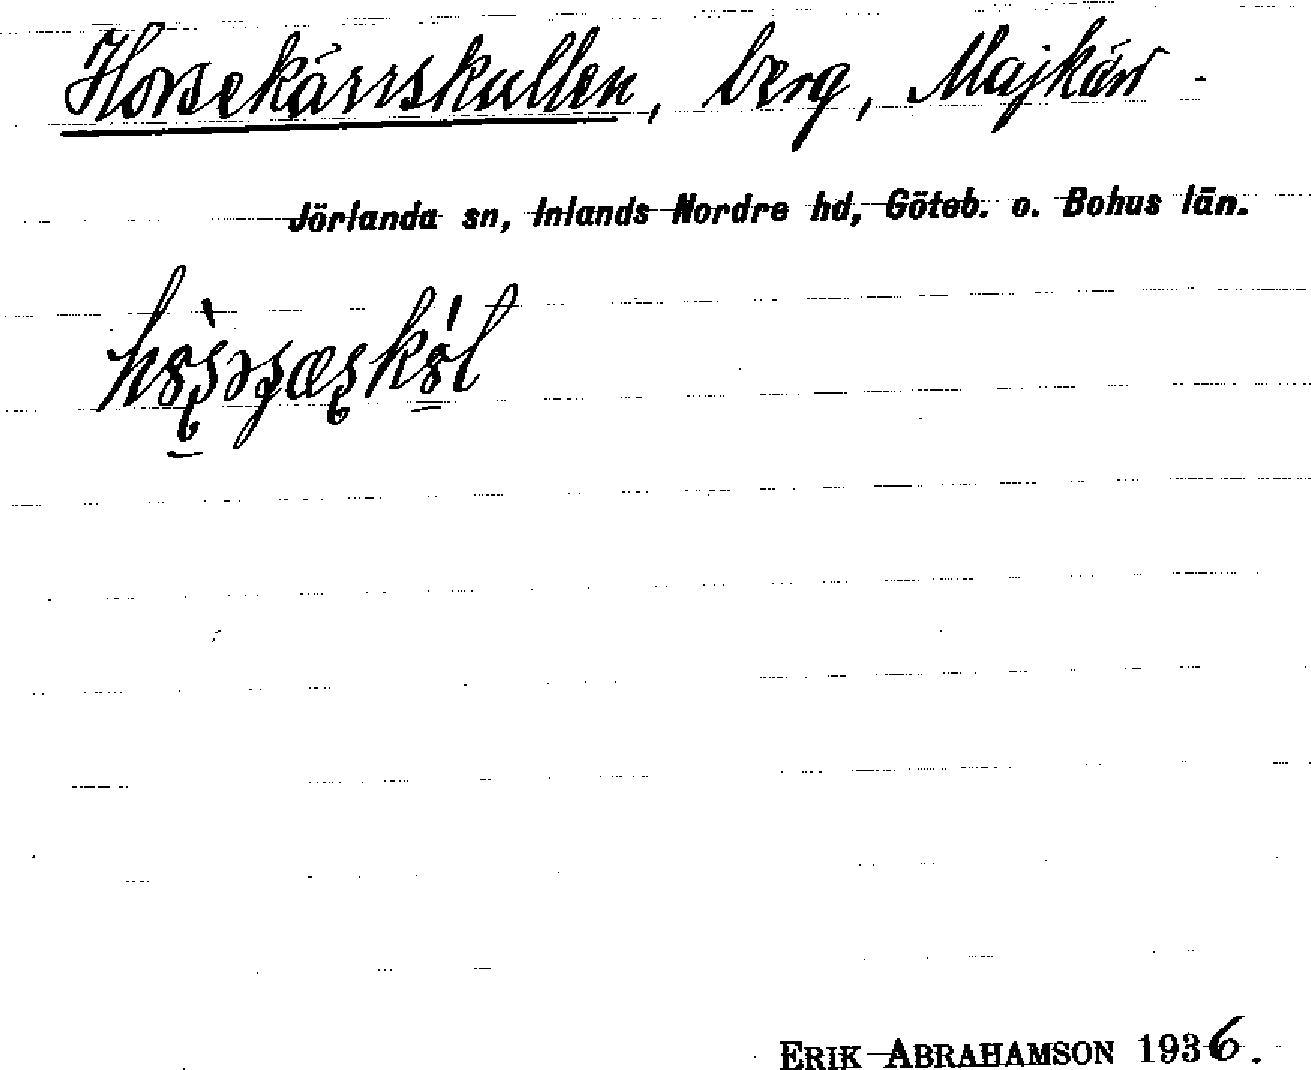 Horsekärrskullen, berg, Majkärr -
Jörlanda sn, Inlands Nordre hd, Göteb. o. Bohus län.
ERIK ABRAHAMSON 1936.